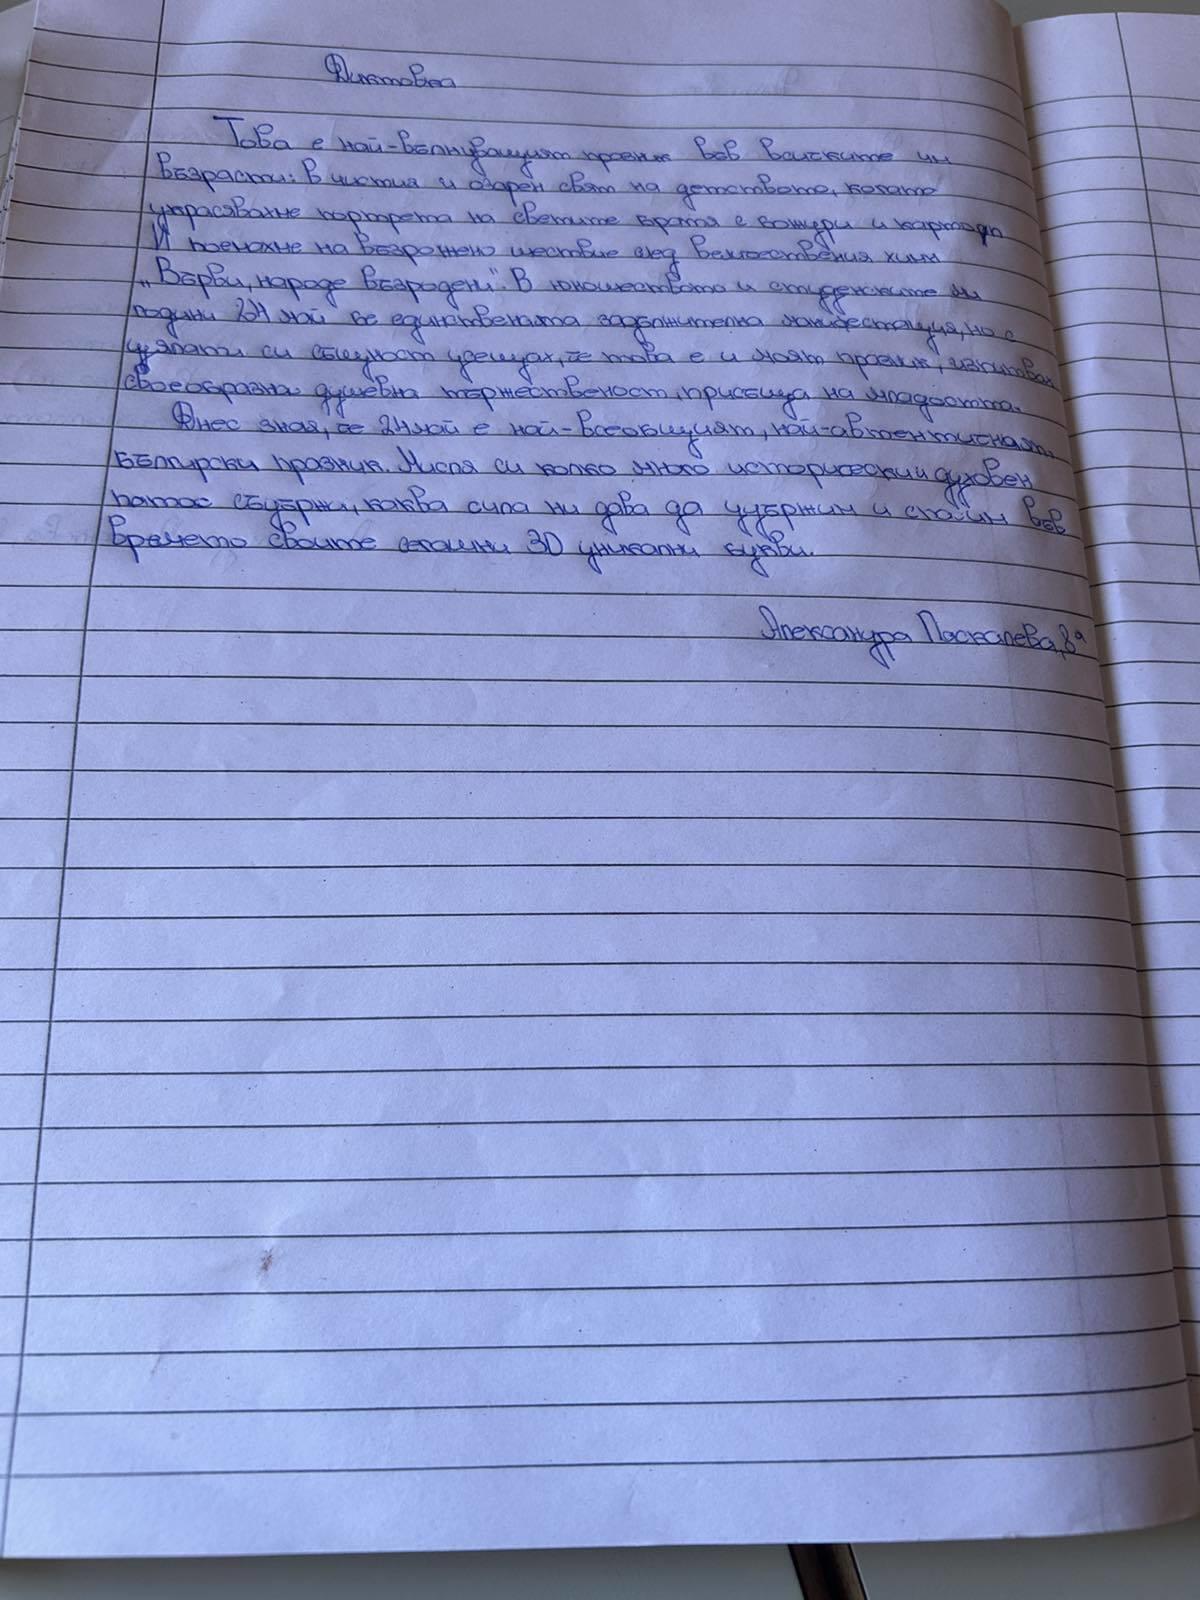 Диктовка
Това е най-вълнуващият празник във всичките ми
възрасти: В чистия и озарен свят на детството, когато
украсявахме портрета на светите братя с божури и
И поемахме на възрожено шествие след величествения химн
„Върви, народе възродени". В юношеството и студенските ми
години 24 май бе единствената задължителна манифестация, но с
цялата си същност усещах, че това е и моят празник, изпитвах
своеобразна душевна тържественост, присъща на младостта.
Днес зная, че 24 май е най-всеобщият, най-автентисният,
български празник. Мисля си колко много исторически духовен
патос събужи, каква сила ни дава да удържим и във
времето своите сегашни 30 уникални букви.
Александра Паскалева, 8а